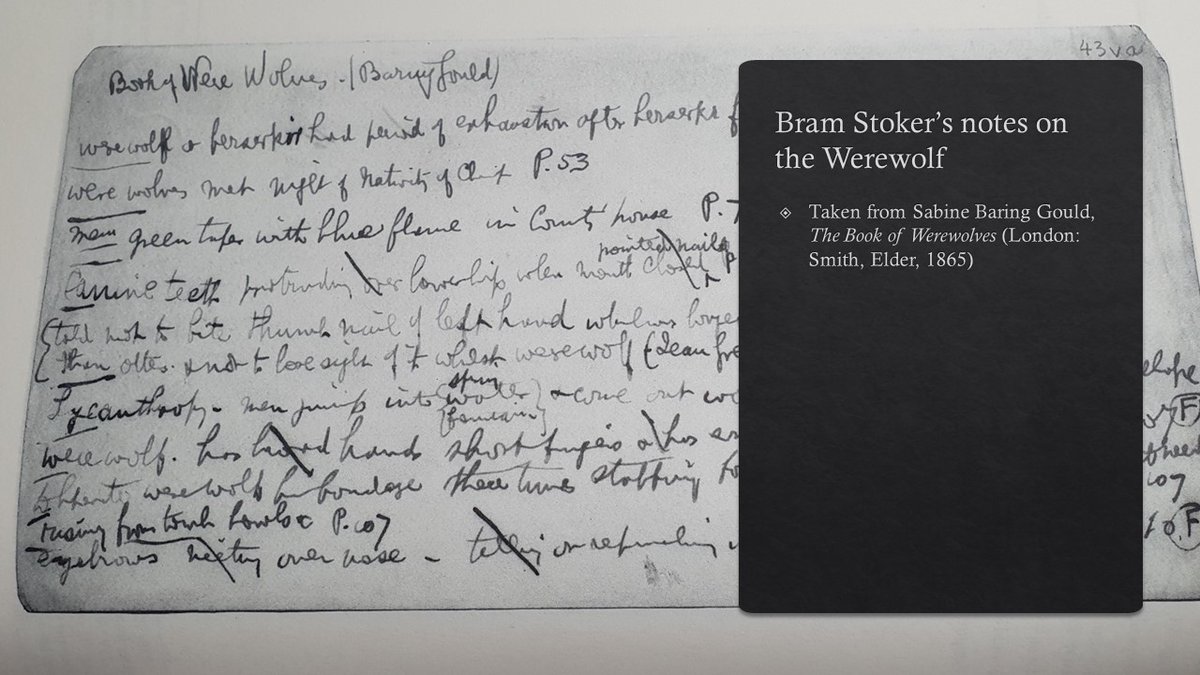 43 va
Book of Were Wolves. (Baring Gould)
werewolf & berserkir had period of exhaustion after berserkr f
were wolves met night of Nativity of Christ P. 53
men green taper with blue flame in Count's house P. 7
pointed nails
Canine teeth protruding over lower lip when mouth closed p
told not to bite thumb nail of left hand which was longer
than others & not to lose sight of it whilst werewolf (Jean Gre
spring
Lycanthropy - men jump into water & come out wo
(fountain)
were wolf. has broad hands short fingers & has
werewolf in bondage three times stabbing fo
rising from tomb howls & P. 107
eyebrows meeting over nose -
elope
F
107
F
Bram Stoker's notes on
the Werewolf
Taken from Sabine Baring Gould,
The Book of Werewolves (London:
Smith, Elder, 1865)